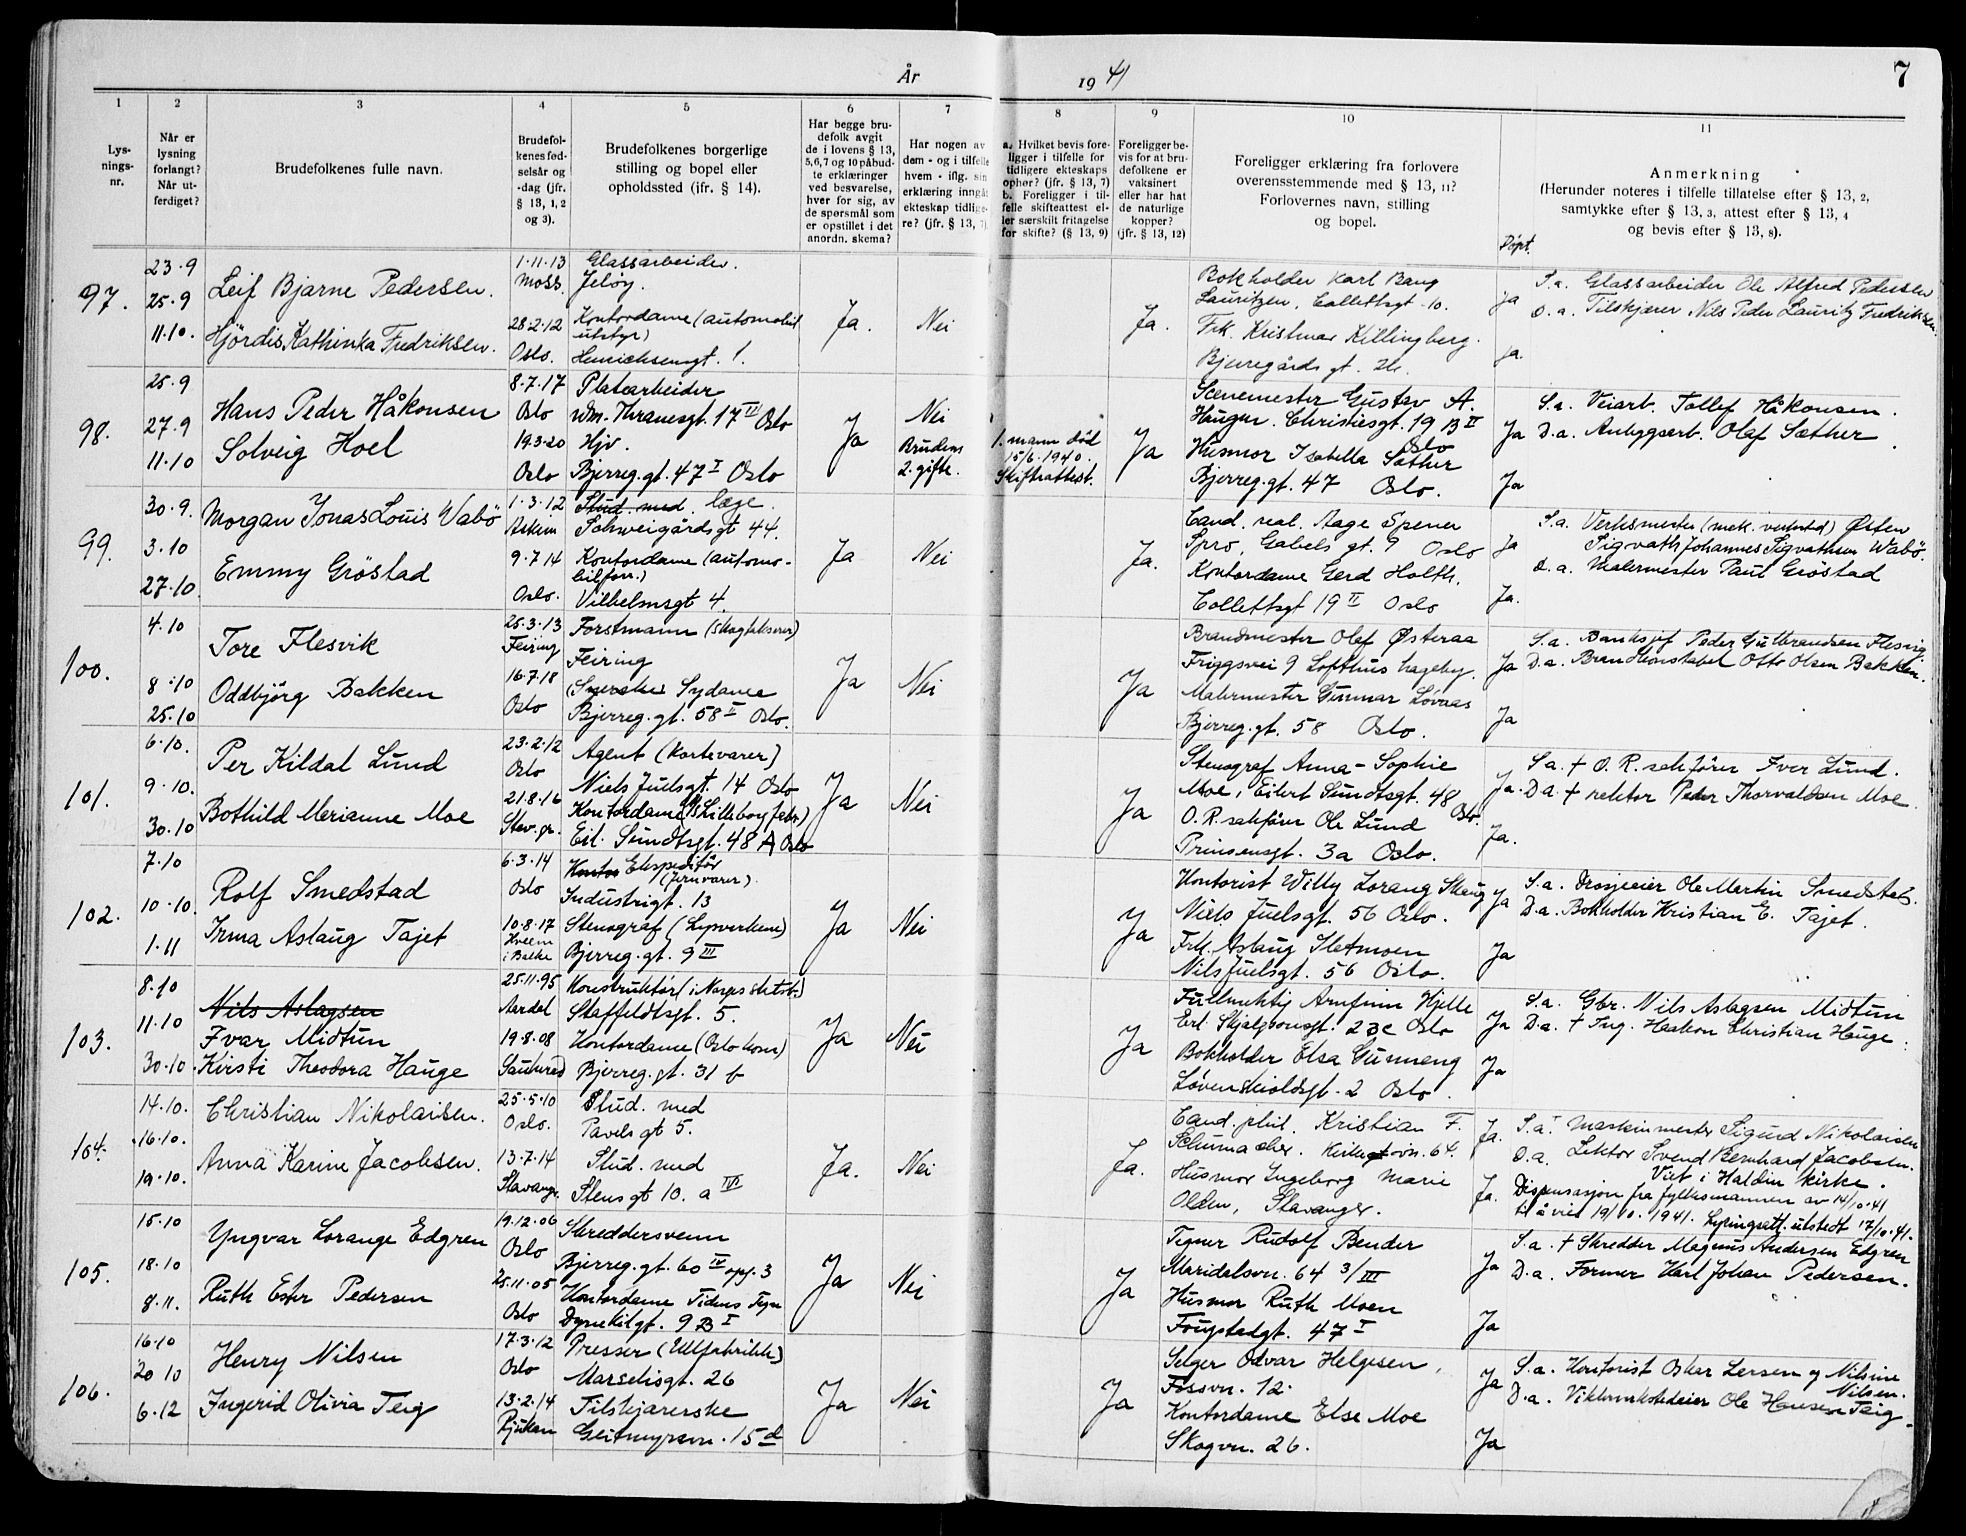 År 1941
7
1 2 3 4 5 6 7 8 9 10 11
Lys-
nings-
nr.
Når er
lysning
forlangt?
Når ut-
ferdiget?
Brudefolkenes fulle navn.
Brudefol-
kenes fød-
selsår og
-dag (jfr.
§ 13, 1, 2
og 3).
Brudefolkenes borgerlige
stilling og bopel eller
opholdssted (jfr. § 14).
Har begge bru-
defolk avgit
de i lovens § 13,
5,6,7 og 10 påbud-
te erklæringer
ved besvarelse,
hver for sig, av
de spørsmål som
er opstillet i det
anordn. skema?
Har nogen av
dem - og i tilfelle
hvem - iflg. sin
erklæring inngåt
ekteskap tidlige-
re? (jfr. § 13, 7)
a. Hvilket bevis fore-
ligger i tilfelle for
tidligere ekteskaps
ophør? (jfr. § 13, 7)
b. Foreligger i til-
felle skifteattest el-
ler særskilt fritagelse
for skifte? (§ 13, 9)
Foreligger be-
vis for at bru-
defolkene er
vaksinert
eller har hat
de naturlige
kopper?
(jfr. § 13, 12)
Foreligger erklæring fra forlovere
overensstemmende med § 13, 11?
Forlovernes navn, stilling
og bopel.
Anmerkning
(Herunder noteres i tilfelle tillatelse efter § 13, 2,
samtykke efter § 13, 3, attest efter § 13, 4
og bevis efter § 13, 8).
Døpt.
97.
23.9
25.9
11.10.
Leif Bjarne Pedersen.
Hjördis Kathinka Fredriksen.
1.11.13
Moss.
28.2.12
Oslo.
Glassarbeider.
Jeløy.
Kontordame (automobil
utstyr)
Henrichsensgt. 1.
Ja.
Nei
Ja.
Bokholder Karl Bang
Lauritzen, Collettsgt. 10.
Frk. Kristmar Killingberg.
Bjerregårds gt.
ja
ja.
S.a. Glassarbeider Ole Alfred Pedersen
D.a. Tilskjærer Nils Peder Lauritz Fredriksen.
98.
25.9
27.9
11.10
Hans Peder Håkonsen
Solveig Hoel
8.7.17
Oslo
19.3.20
Oslo
Platearbeider
Wm. Thranesgt. 17 IV Oslo
Hjv.
Bjerreg.gt. 47 I Oslo
Ja
Nei
Brudens
2. gifte.
1. mann död
15/6.1940.
Skifteattest.
Ja
Scenemester Gustav A.
Haugen. Christiesgt. 19 B II
Oslo
Husmor Isabella Sæther
Bjerreg.gt. 47 Oslo.
Ja
Ja
S.a. Veiarb. Tollef Håkonsen.
D.a. Anleggsarb. Olaf Sæther.
99.
30.9.
3.10
27.10
Morgan Jonas Louis Wabö
Emmy Gröstad
1.3.12
Askim
9.7.14
Oslo.
Stud. med. læge.
Schweigårdsgt 44.
Kontordame (automo-
bilforr.)
Vilhelmsgt 4.
Ja
Nei
Ja.
Cand. real. Aage Spener
Spro, Gabels gt. 9 Oslo
Kontordame Gerd Holth.
Collettsgt 19 II Oslo
Ja
Ja.
S.a. Verksmester (mek. verksted) Østen
Sigvath Johannes Sigvathsen Wabö.
D.a. Malermester Paul Gröstad
100.
4.10
8.10
25.10
Tore Flesvik
Oddbjörg Bakken
25.3.13
Feiring
16.7.18
Oslo
Forstmann
Feiring
Sydame
Bjerreg.gt. 58 II Oslo.
Ja
Nei
Ja
Brandmester Olaf Østeraa
Friggsvei 9 Lofthus hageby.
Malermester Gunnar Løvaas
Bjerreg.gt. 58 Oslo.
Ja
Ja
S.a. Banksjef Peder Gulbrandsen Flesvig
D.a. Brandkonstabel Otto Olsen Bakken.
101.
6.10.
9.10.
30.10
Per Kildal Lund
Bothild Merianne Moe
23.2.12
Oslo
21.8.16
Stav.gr.
Agent (kortevarer)
Niels Juelsgt. 14 Oslo
Kontordame (Skilleborg fabr.)
Eil. Sundtsgt. 48 A Oslo
Ja
Nei
Ja
Stenograf Anna-Sophie
Moe, Eilert Sundtsgt. 48
Oslo.
O.R.sakfører Ole Lund
Prinsensgt. 3a Oslo.
Ja.
Ja.
S.a. † O.R.sakfører Iver Lund.
D.a. † rektor Peder Thorvaldsen Moe.
102.
7.10
10.10.
1.11
Rolf Smedstad
Irma Aslaug Tajet
6.3.14
Oslo
10.8.17
Kveem
i Balke
Kontor Ekspeditör
(Jernvarer)
Industrigt. 13
Stenograf (Lysverkene)
Bjerreg.gt. 9 III
Ja
Nei
Ja
Kontorist Willy Lorang Skaug
Niels Juelsgt. 56 Oslo.
Frk. Aslaug Sletmoen
Nils Juelsgt. 56 Oslo.
Ja
Ja
S.a. Drosjeeier Ole Martin Smedstad.
D.a. Bokholder Kristian E. Tajet.
103.
8.10
11.10
30.10.
Nils Aslagsen
Ivar Midtun
Kirsti Theodora Hauge
25.11.95
Aardal
19.8.08
Sauherad
Konstruktör (i Norges Statsb.)
Staffeldtsgt. 5.
Kontordame (Oslo kom)
Bjerreg.gt. 31 b
Ja
Nei
Ja
Fullmektig Arnfinn Hjelle
Erl. Skjalgsonsgt. 23c Oslo
Bokholder Elsa Gunneng
Løvenskioldsgt. 2 Oslo.
Ja
Ja
S.a. Gbr. Nils Aslagsen Midtun
D.a. † Ing. Haakon Christian Hauge.
104.
14.10.
16.10.
19.10.
Christian Nikolaisen.
Anna Karine Jacobsen.
25.5.10
Oslo.
13.7.14
Stavanger
Stud. med
Pavels gt 5.
Stud. med
Stens gt 10. a IV
Ja.
Nei
Ja.
Cand. phil. Kristian F.
Schumacher. Kirkevn. 64.
Husmor Ingeborg Marie
Olden, Stavanger.
Ja.
Ja.
S.a. Maskinmester Sigurd Nikolaisen
D.a. Lektor Svend Bernhard Jacobsen.
Viet i Haldin kirke.
Dispensasjon fra fylkesmannen av 14/10.41
til å vies 19/10. 1941. Lysingsatt. utstedt 17/10.41.
105.
15.10
18.10
8.11.
Yngvar Lorange Edgren
Ruth Ester Pedersen
19.12.06
Oslo
25.11.05
Oslo
Skreddersvenn
Bjerreg.gt. 60 IV opg. 3
Kontordame Tidens Tegn
Dynekilgt. 9 B I
Ja
Nei
Ja
Tegner Rudolf Bender
Maridalsvn. 64 3/III
Husmor Ruth Moen
Fougstadgt. 47 I
Ja
Ja
S.a. † Skredder Magnus Andersen Edgren
D.a. Former Karl Johan Pedersen.
106.
16.10
20.10
6.12
Henry Nilsen
Ingerid Olivia Teig
17.3.12
Oslo
13.2.14
Rjukan
Presser (Ullfabrikk)
Marselisgt. 26
Tilskjærerske
Geitmyrsvn. 15d
Ja
Nei
Ja
Selger Odvar Helgesen,
Fossvn. 12.
Kontordame Else Moe
Skogvn. 26.
Ja
Ja
S.a. Kontorist Oskar Larsen og Nilsine
Nilsen.
D.a. Ole Hansen Teig.